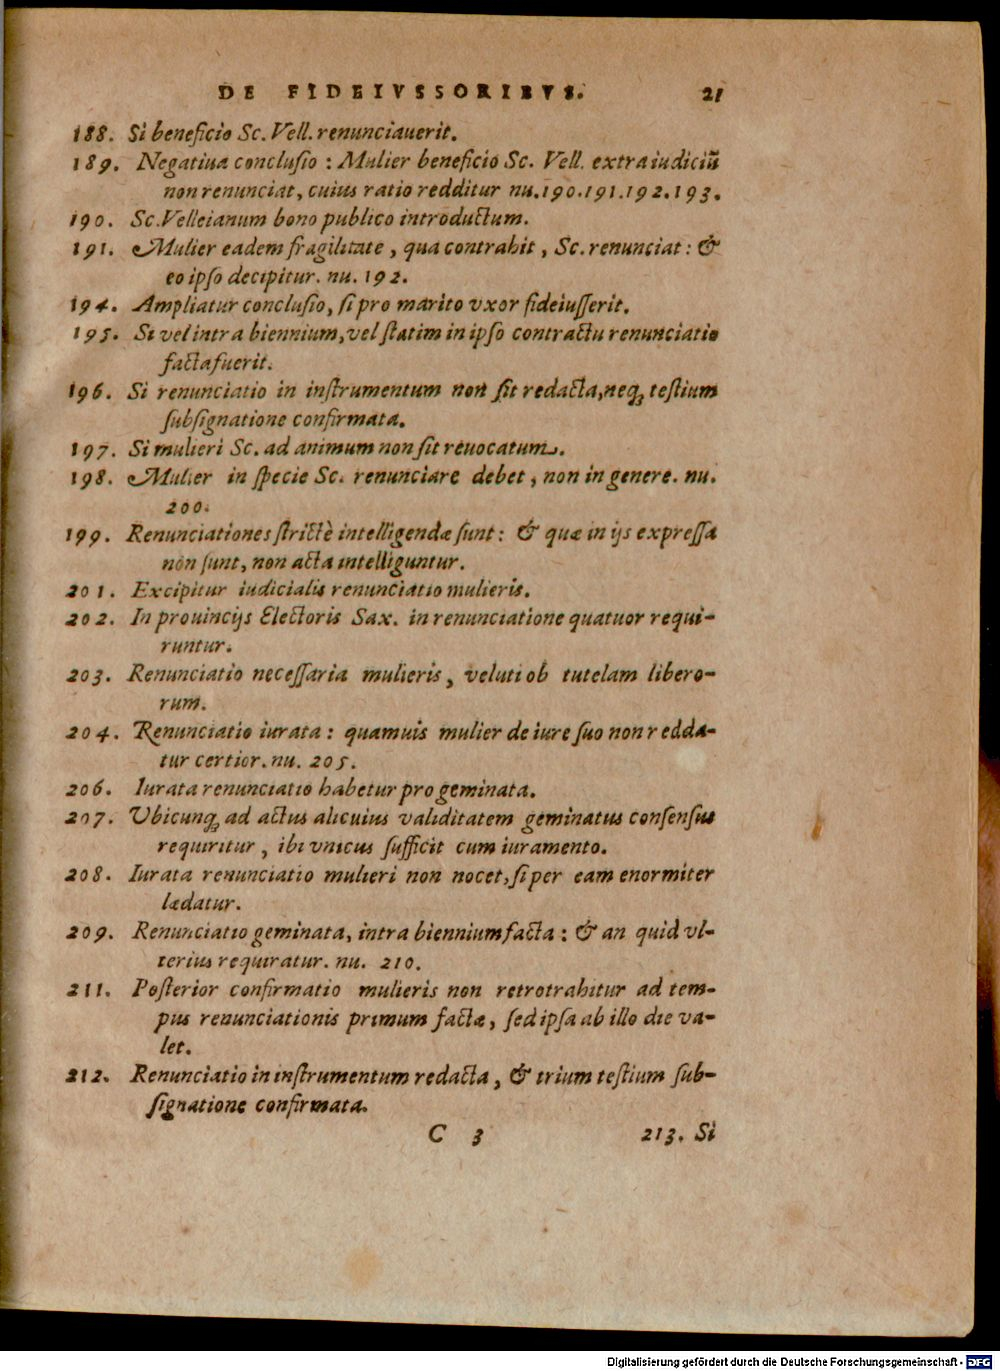 DE FIDEIVSSORIBVS. 21
188. Si beneficio Sc. Vell. renunciauerit.
189. Negatiua conclusio : Mulier beneficio Sc. Vell. extra iudiciū
non renunciat, cuius ratio redditur nu.190.191.192.193.
190. Sc.Velleianum bono publico introductum.
191. Mulier eadem fragilitate , qua contrahit , Sc. renunciat : &
eo ipso decipitur. nu. 192.
194. Ampliatur conclusio, si pro marito vxor fideiusserit.
195. Si vel intra biennium, vel statim in ipso contractu renunciatio
facta fuerit.
196. Si renunciatio in instrumentum non sit redacta,neq; testium
subsignatione confirmata.
197. Si mulieri Sc. ad animum non sit reuocatum.
198. Mulier in specie Sc. renunciare debet , non in genere. nu.
200.
199. Renunciationes strictè intelligendæ sunt : & quæ in ijs expressa
non sunt, non acta intelliguntur.
201. Excipitur iudicialis renunciatio mulieris.
202. In prouincijs Electoris Sax. in renunciatione quatuor requi-
runtur.
203. Renunciatio necessaria mulieris , veluti ob tutelam libero-
rum.
204. Renunciatio iurata : quamuis mulier de iure suo non redda-
tur certior. nu. 205.
206. Iurata renunciatio habetur pro geminata.
207. Vbicunq; ad actus alicuius validitatem geminatus consensus
requiritur , ibi vnicus sufficit cum iuramento.
208. Iurata renunciatio mulieri non nocet, si per eam enormiter
lædatur.
209. Renunciatio geminata, intra biennium facta : & an quid vl-
terius requiratur. nu. 210.
211. Posterior confirmatio mulieris non retrotrahitur ad tem-
pus renunciationis primum factæ , sed ipsa ab illo die va-
let.
212. Renunciatio in instrumentum redacta , & trium testium sub-
signatione confirmata.
C 3 213. Si
Digitalisierung gefördert durch die Deutsche Forschungsgemeinschaft - DFG